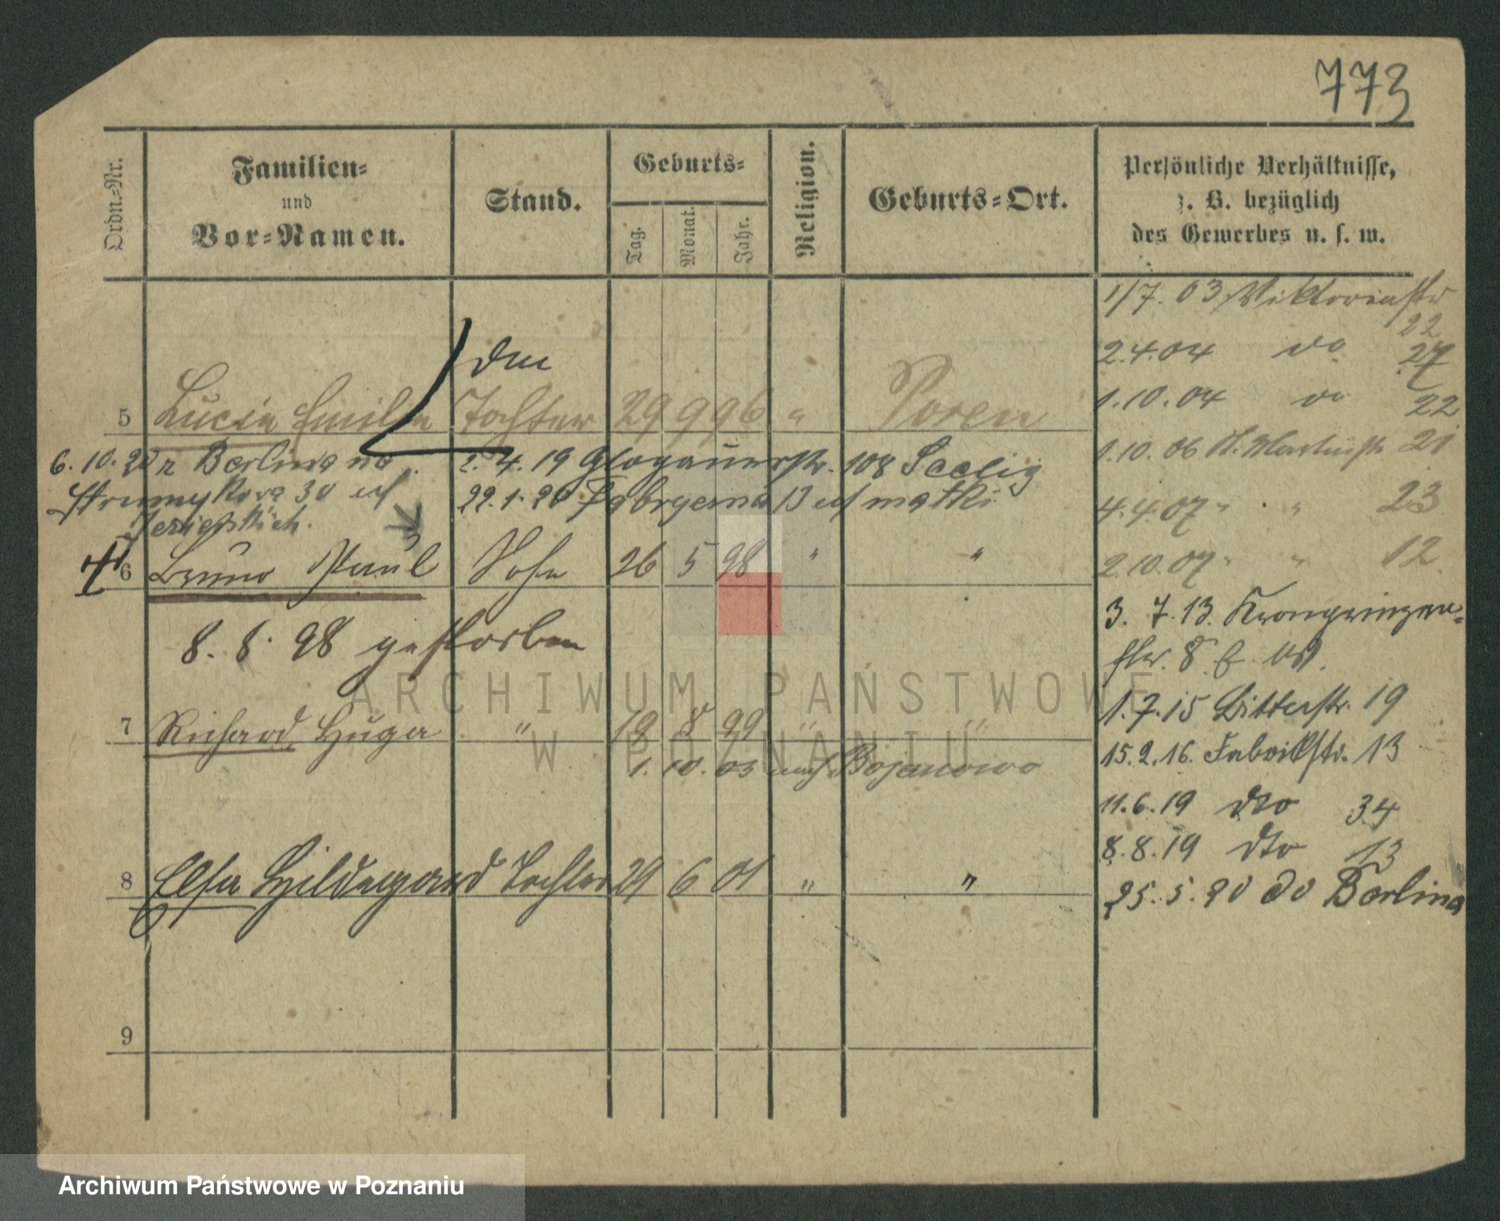 773
Ordn.-Nr.
Familien-
und
Vor-Namen.
Stand.
Geburts-
Tag.
Monat.
Jahr.
Religion.
Geburts-Ort.
Persönliche Verhältnisse,
z. B. bezüglich
des Gewerbes u. s. w.
1/7. 03 Viktoriastr
22
2.4.04 do 27
1.10.04 do 22
5 Lucie Emilie Tochter 29 9 96 " Posen
1.10.06 St. Martinstr 21
6.10.20 z Berlina na
2.4.19 Glogauerstr. 108 Seelig
30
22.1.20 13 matki
4.4.07 " " 23
6 Bruno Paul Sohn 26 5 98 " "
2.10.07 " " 12
8. 8. 98 gestorben
3. 7. 13. Kronprinzen-
str. 8
1.7.15 Bitterstr. 19
7 Richard Hugo " 18 8 99 " "
1. 10. 03 nach Bojanowo
15.2.16. Fabrikstr. 13
11.6.19 dto 34
8.8.19 dto 13
8 Elsa Hildegard Tochter 29 6 01 " "
25. 5. 20 do Berlina
9
ARCHIWUM PAŃSTWOWE
W POZNANIU
Archiwum Państwowe w Poznaniu